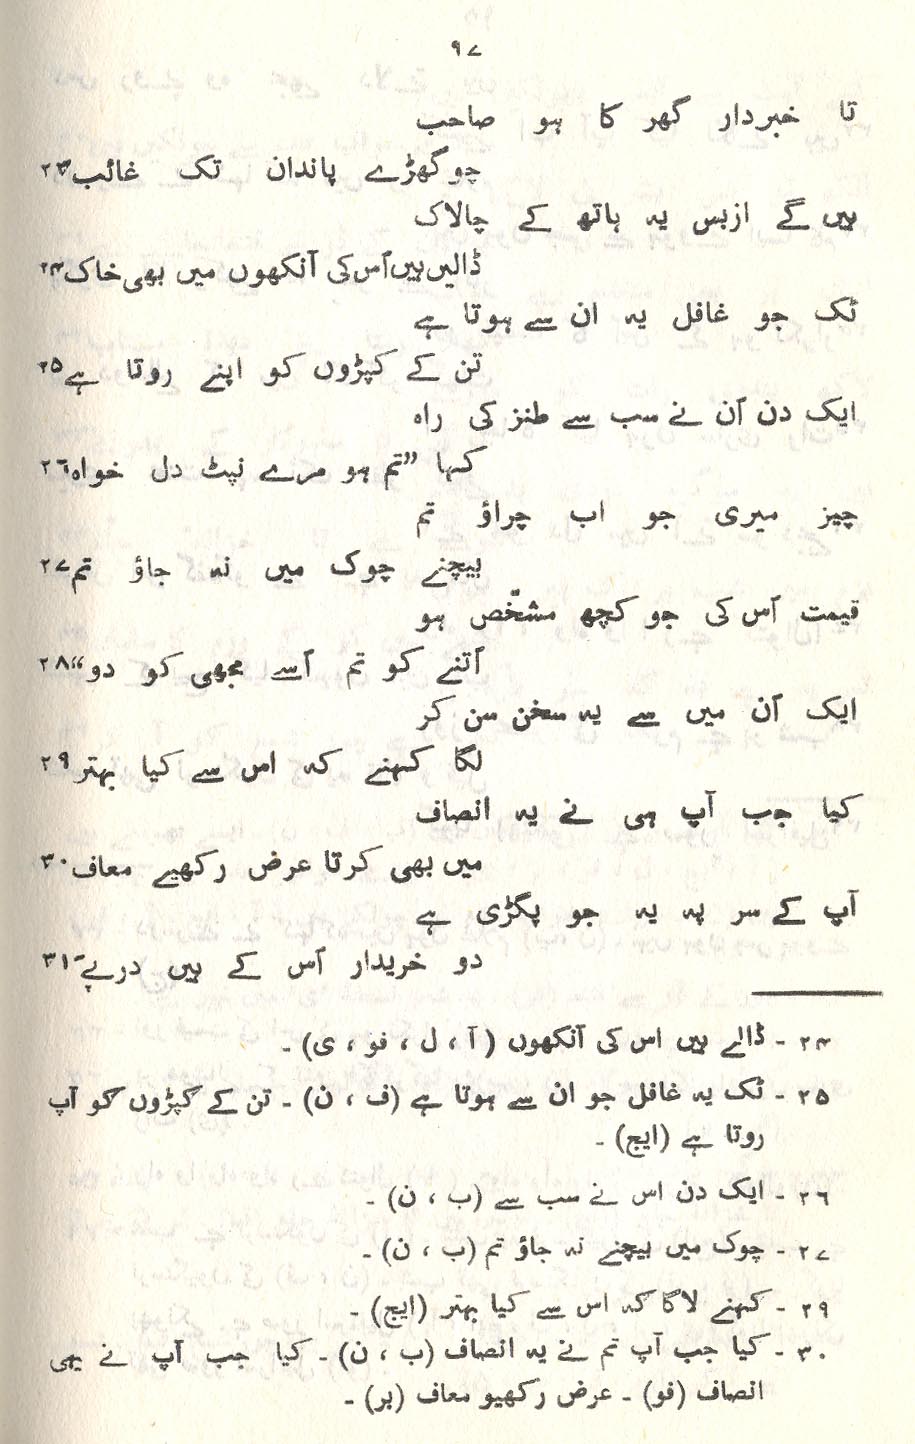 ۹۷
تا خبردار گھر کا ہو صاحب
چوگھڑے پاندان تک غائب۲۳
ہیں گے ازبس یہ ہاتھ کے چالاک
ڈالیں ہیں اُس کی آنکھوں میں بھی خاک۲۴
ٹک جو غافل یہ ان سے ہوتا ہے
تن کے کپڑوں کو اپنے روتا ہے۲۵
ایک دن اُن نے سب سے طنز کی راہ
کہا ”تم ہو مرے نپٹ دل خواہ۲۶
چیز میری جو اب چراؤ تم
بیچنے چوک میں نہ جاؤ تم۲۷
قیمت اُس کی جو کچھ مشخّص ہو
اُتنے کو تم اُسے مجھی کو دو“۲۸
ایک اُن میں سے یہ سخن سن کر
لگا کہنے کہ اس سے کیا بہتر۲۹
کیا جب آپ ہی نے یہ انصاف
میں بھی کرتا عرض رکھیے معاف۳۰
آپ کے سر پہ یہ جو پگڑی ہے
دو خریدار اُس کے ہیں درپے۳۱
۲۴ - ڈالے ہیں اس کی آنکھوں (آ ، ل ، فو ، ی) ۔
۲۵ - ٹک یہ غافل جو ان سے ہوتا ہے (ف ، ن) ۔ تن کے کپڑوں کو آپ
روتا ہے (ایچ) ۔
۲۶ - ایک دن اس نے سب سے (ب ، ن) ۔
۲۷ - چوک میں بیچنے نہ جاؤ تم (ب ، ن) ۔
۲۹ - کہنے لاگا کہ اس سے کیا بہتر (ایچ) ۔
۳۰ - کیا جب آپ تم نے یہ انصاف (ب ، ن) ۔ کیا جب آپ نے یہی
انصاف (فو) ۔ عرض رکھیو معاف (بر) ۔